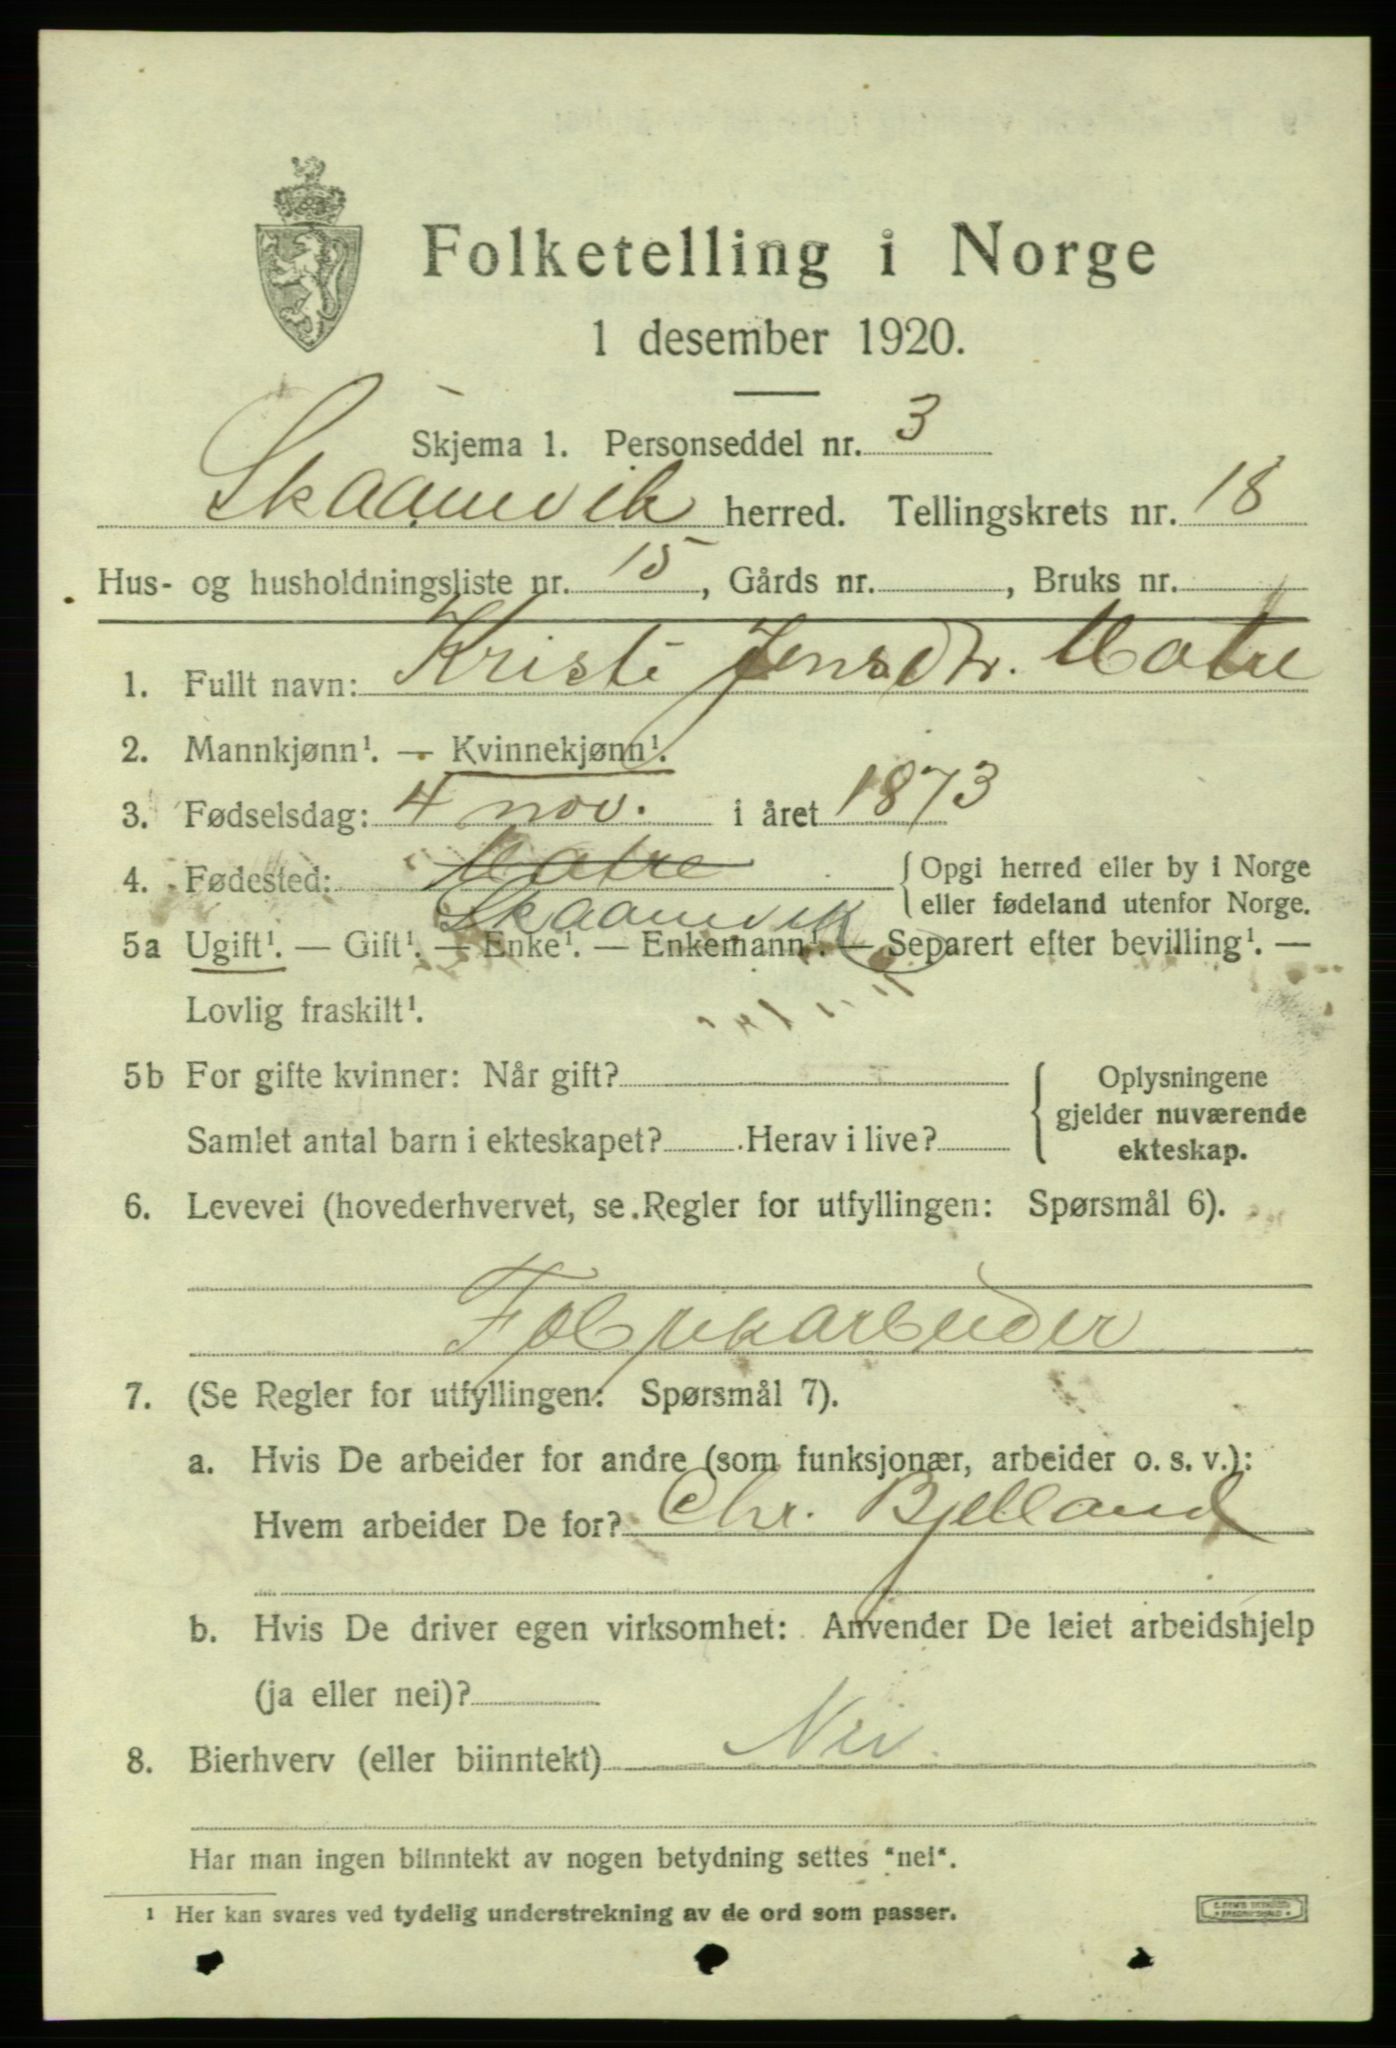 Folketelling i Norge
1 desember 1920.
Skjema 1. Personseddel nr. 3
Skaanevik herred. Tellingskrets nr. 18
Hus- og husholdningsliste nr. 15, Gårds nr. , Bruks nr.
1. Fullt navn: Kristi Jensdtr. Matre
2. Mannkjønn¹. — Kvinnekjønn¹.
3. Fødselsdag: 4 nov. i året 1873
4. Fødested: Matre { Opgi herred eller by i Norge
Skaanevik eller fødeland utenfor Norge.
5a Ugift¹. — Gift¹. — Enke¹. — Enkemann¹. — Separert efter bevilling¹. —
Lovlig fraskilt¹.
5b For gifte kvinner: Når gift? { Oplysningene
gjelder nuværende
Samlet antal barn i ekteskapet? Herav i live? ekteskap.
6. Levevei (hovederhvervet, se Regler for utfyllingen: Spørsmål 6).
Fabrikarbeider
7. (Se Regler for utfyllingen: Spørsmål 7).
a. Hvis De arbeider for andre (som funksjonær, arbeider o. s. v.):
Hvem arbeider De for? Chr. Bjelland
b. Hvis De driver egen virksomhet: Anvender De leiet arbeidshjelp
(ja eller nei)?
8. Bierhverv (eller biinntekt) Nei.
Har man ingen biinntekt av nogen betydning settes "nei".
¹ Her kan svares ved tydelig understrekning av de ord som passer.